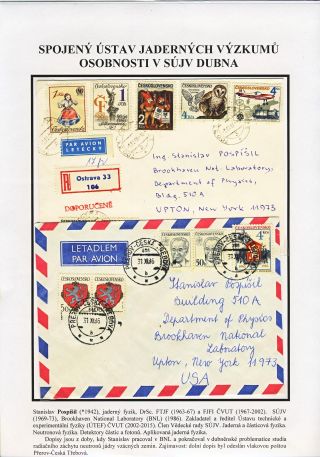 SPOJENÝ ÚSTAV JADERNÝCH VÝZKUMŮ
OSOBNOSTI V SÚJV DUBNA
ČESKOSLOVENSKO
ČESKOSLOVENSKO
ČESKOSLOVENSKO
PAR AVION
LETECKY
R
Ostrava 33
106
DOPORUČENĚ
Ing Stanislav POSPÍŠIL
Brookhaven Nat. Laboratory
Department of Physics,
Bldg. 510A
UPTON, New York 11973
LETADLEM
PAR AVION
31.XII.86
31.XII.86
Stanislav Pospisil
Building 510 A
Department of Physics
Brookhaven National
Laboratory
Upton, New York 11973
USA
Stanislav Pospíšil (*1942), jaderný fyzik, DrSc. FTJF (1963-67) a FJFI ČVUT (1967-2002), SÚJV
(1969-73), Brookhaven National Laboratory (BNL) (1986). Zakladatel a ředitel Ústavu technické a
experimentální fyziky (ÚTEF) ČVUT (2002-2015). Člen Vědecké rady SÚJV. Jaderná a částicová fyzika.
Neutronová fyzika. Detektory částic a fotonů. Aplikovaná jaderná fyzika.
Dopisy jsou z doby, kdy Stanislav pracoval v BNL a pokračoval v dubněnské problematice studia
radiačního záchytu neutronů jádry vzácných zemin. Zajímavost: dolní dopis byl odeslán vlakovou poštou
Přerov-Česká Třebová.